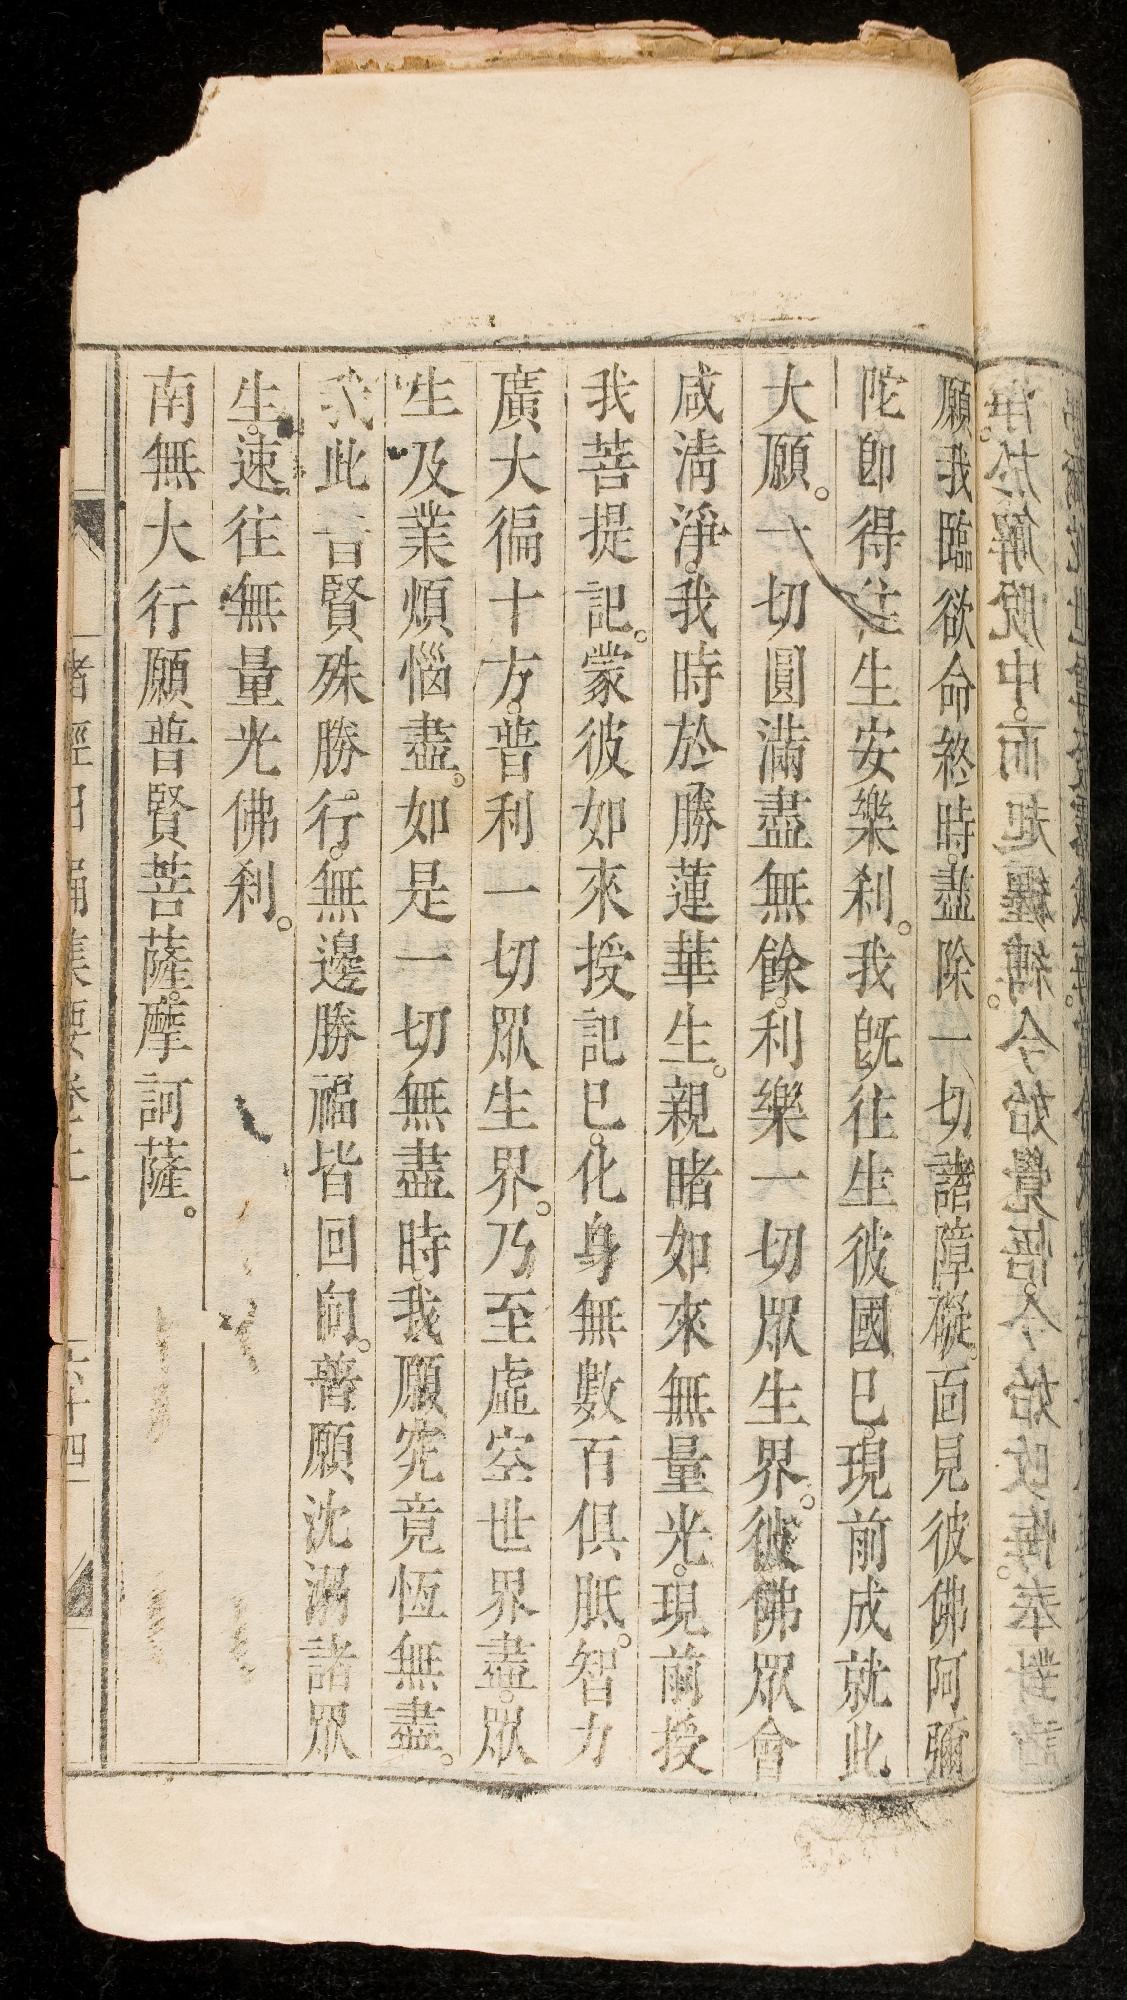 願我臨欲命終時。盡除一切諸障礙。面見彼佛阿彌
陀。卽得往生安樂刹。我旣往生彼國已。現前成就此
大願。一切圓滿盡無餘。利樂一切眾生界。彼佛眾會
咸淸淨。我時於勝蓮華生。親睹如來無量光。現前授
我菩提記。蒙彼如來授記已。化身無數百俱胝。智力
廣大徧十方。普利一切眾生界。乃至虛空世界盡。眾
生及業煩惱盡。如是一切無盡時。我願究竟恆無盡。
我此普賢殊勝行。無邊勝福皆回向。普願沈溺諸眾
生。速往無量光佛刹。
南無大行願普賢菩薩。摩訶薩。
諸經日誦集要卷上
六十四